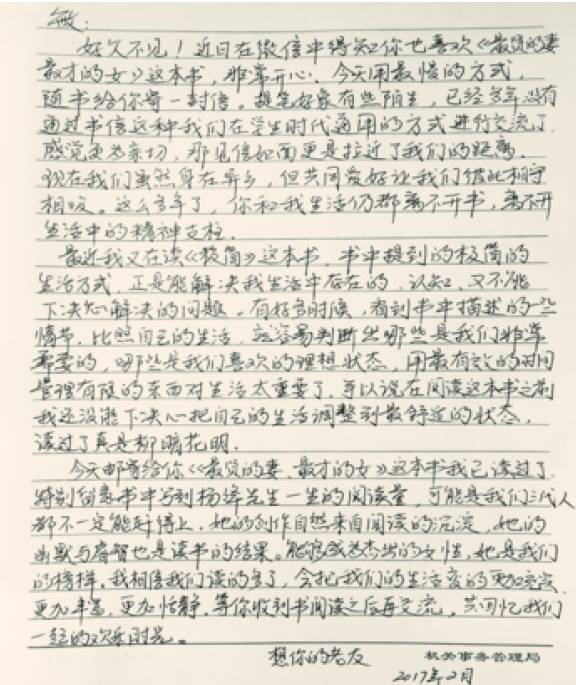 敏:
好久不见！近日在微信中得知你也喜欢《最贤的妻
最才的女》这本书，非常开心。今天用最慢的方式，
随书给你寄一封信。提笔好象有些陌生，已经多年没有
通过书信这种我们在学生时代通用的方式进行交流了.
感觉更为亲切，那见信如面更是拉近了我们的距离.
现在我们虽然身在异乡，但共同爱好让我们彼此相守
相望。这么多年了，你和我生活仍都离不开书，离不开
生活中的精神支柱.
最近我又在读《极简》这本书，书中提到的极简的
生活方式，正是能解决我生活中存在的，认知、又不能
下决心解决的问题。有好多时候，看到书中描述的一些
情节，比照自己的生活，就容易判断出哪些是我们非常
需要的，哪些是我们喜欢的理想状态，用最有效的时间
管理有限的东西对生活太重要了，可以说在阅读这本书之前
我还没能下决心把自己的生活调整到最舒适的状态，
读过了真是柳暗花明.
今天邮寄给你《最贤的妻、最才的女》这本书我已读过了.
特别留意书中写到杨绛先生一生的阅读量，可能是我们三代人
都不一定能赶得上，她的创作自然来自阅读的沉淀，她的
幽默与睿智也是读书的结果。能够成为杰出的女性，她是我们
的榜样，我相信我们读的多了，会把我们的生活变的更加
更加丰富，更加恬静，等你收到书阅读之后再交流，共同忆我们
一起的欢乐时光。
想你的老友
机关事务管理局
2017年2月